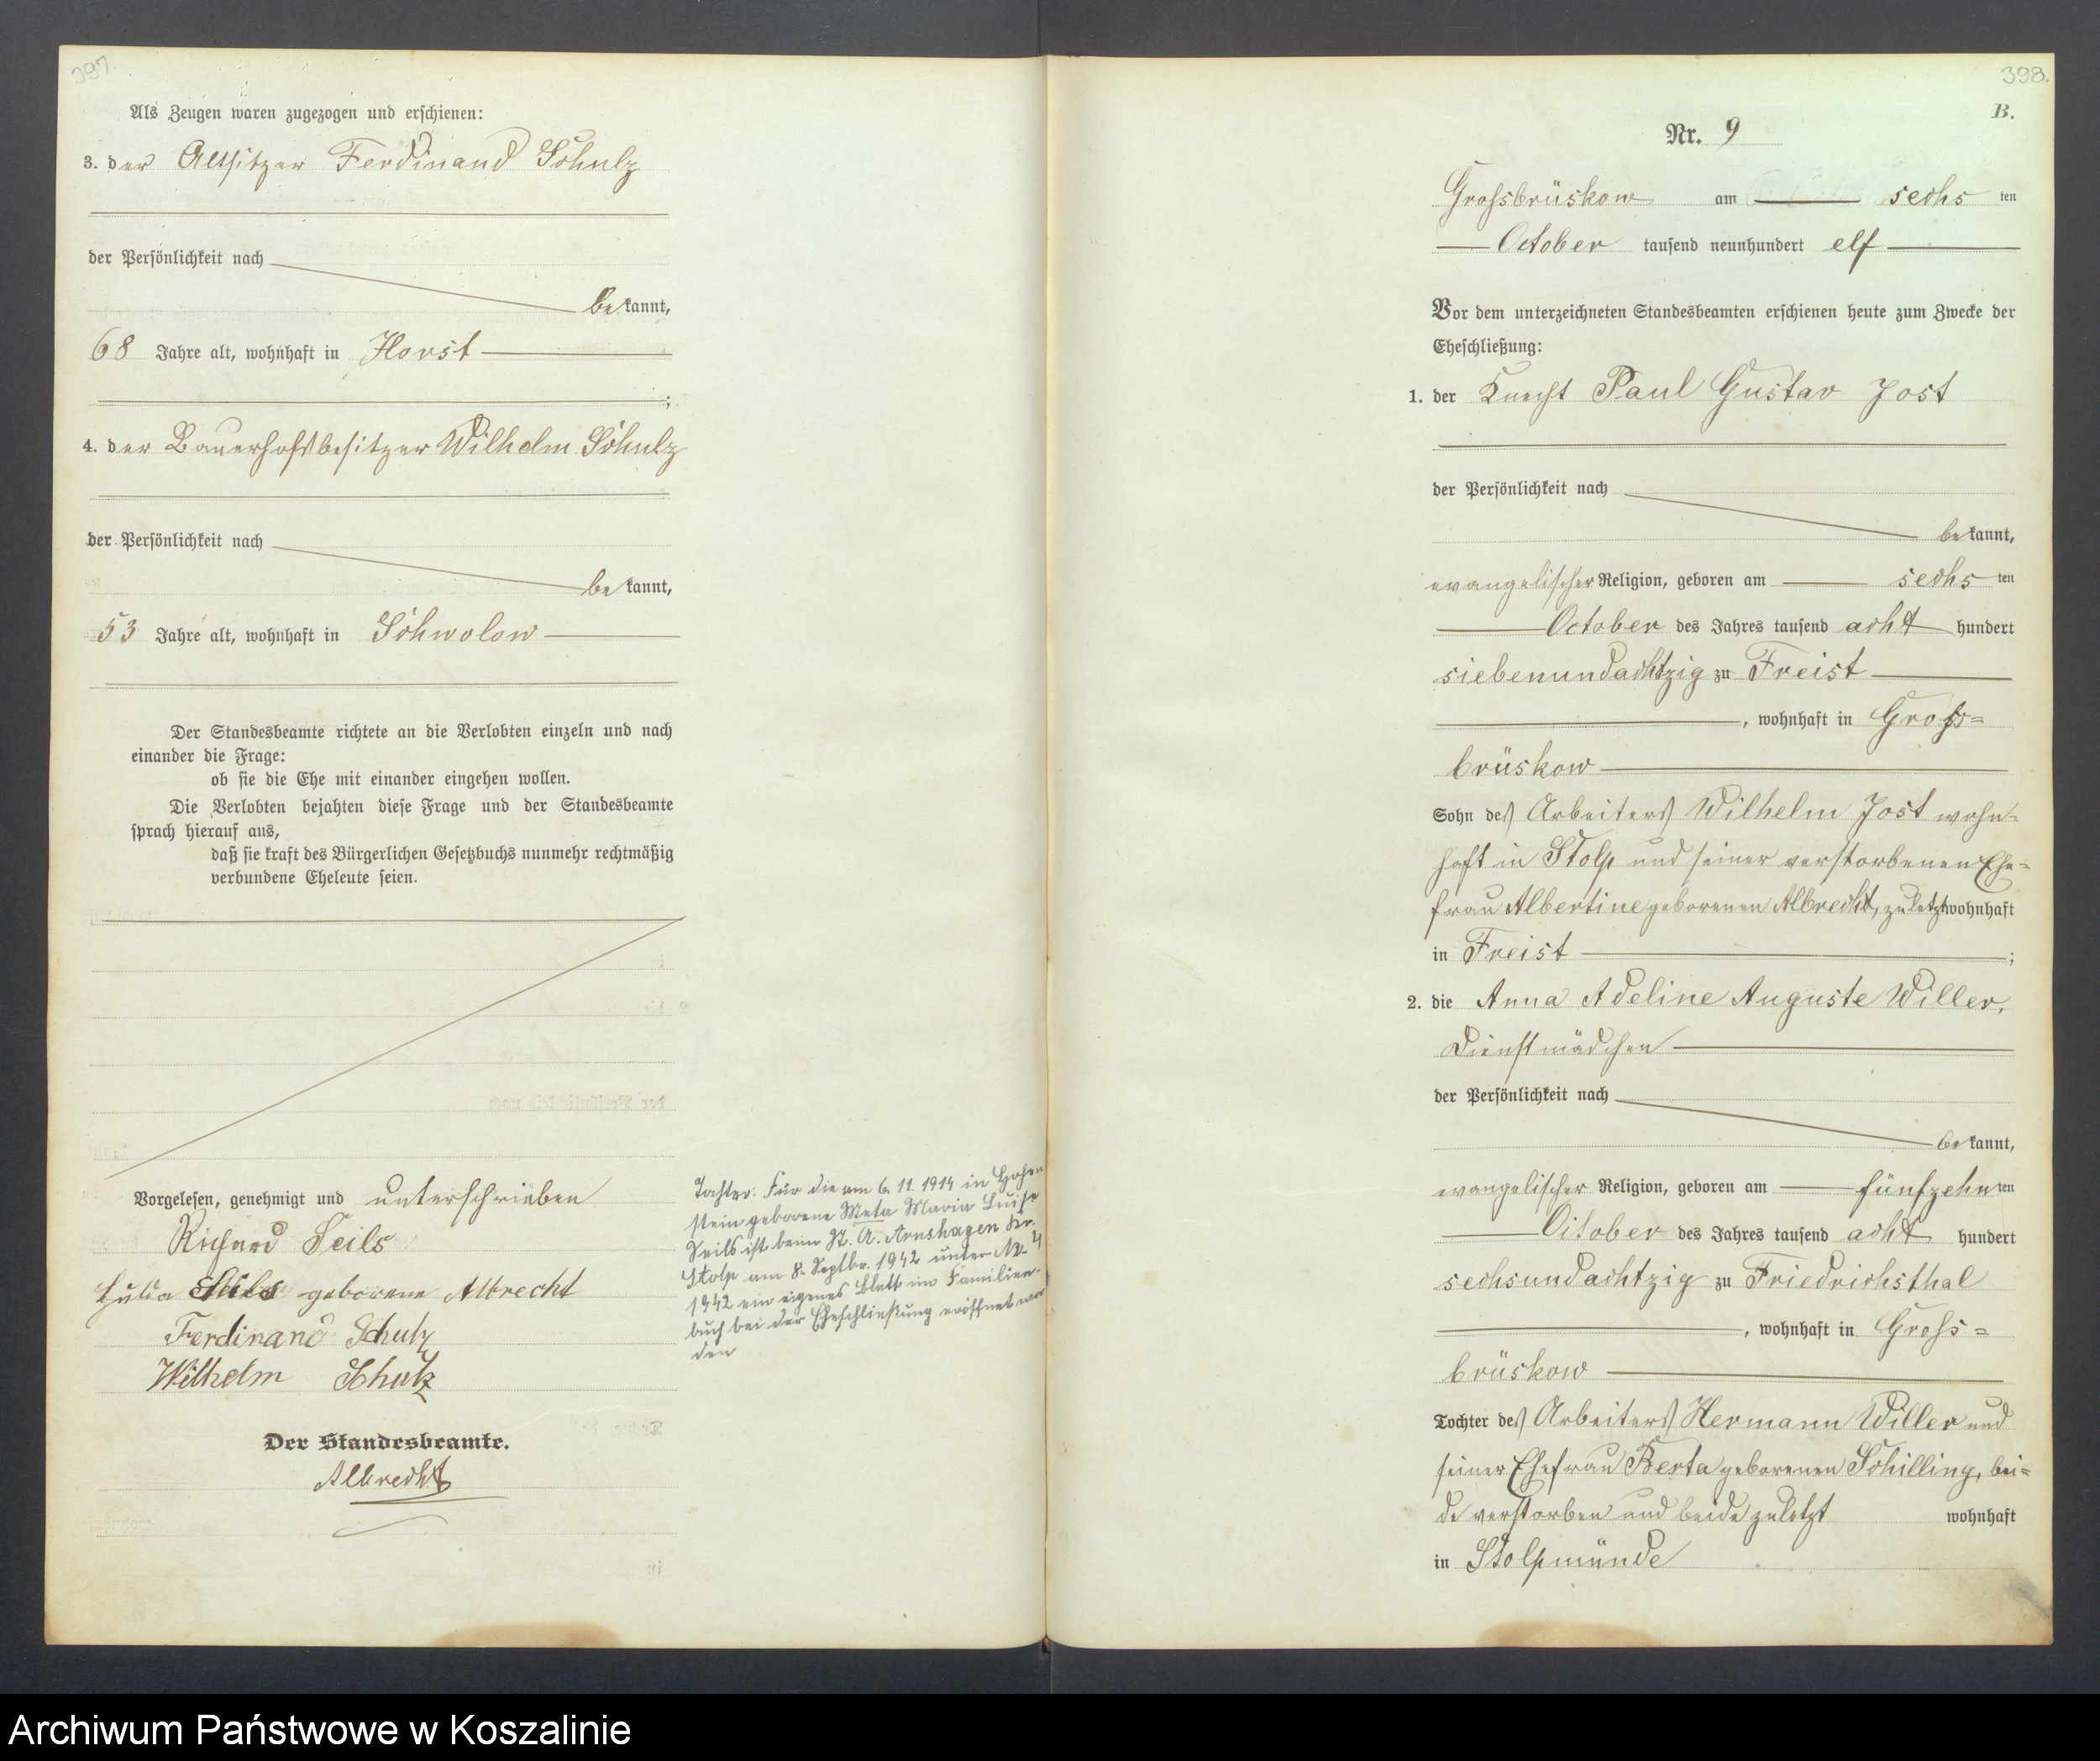 397.
Als Zeugen waren zugezogen und erschienen:
3. der Altsitzer Ferdinand Schulz
der Persönlichkeit nach
bekannt,
68 Jahre alt, wohnhaft in Horst
;
4. der Bauerhofsbesitzer Wilhelm Schulz
der Persönlichkeit nach
bekannt,
53 Jahre alt, wohnhaft in Schwolow
Der Standesbeamte richtete an die Verlobten einzeln und nach
einander die Frage:
ob sie die Ehe mit einander eingehen wollen.
Die Verlobten bejahten diese Frage und der Standesbeamte
sprach hierauf aus,
daß sie kraft des Bürgerlichen Gesetzbuchs nunmehr rechtmäßig
verbundene Eheleute seien.
Vorgelesen, genehmigt und unterschrieben
Richard Seils
Hulda Seils geborene Albrecht
Ferdinand Schulz
Wilhelm Schulz
Der Standesbeamte.
Albrecht
Tochter: Für die am 6. 11. 1914 in Hohen
stein geborene Meta Maria Luise
Seils ist beim St. A. Arnshagen Kr.
Stolp am 8. Septbr. 1942 unter Nr. 4
1942 ein eigenes Blatt im Familien-
buch bei der Eheschließung eröffnet wor
den
398.
B.
Nr. 9
Grossbrüskow am sechs ten
October tausend neunhundert elf
Vor dem unterzeichneten Standesbeamten erschienen heute zum Zwecke der
Eheschließung:
1. der Knecht Paul Gustav Jost
der Persönlichkeit nach
bekannt,
evangelischer Religion, geboren am sechs ten
October des Jahres tausend acht hundert
siebenundachtzig zu Freist
, wohnhaft in Gross=
brüskow
Sohn des Arbeiters Wilhelm Jost wohn-
haft in Stolp und seiner verstorbenen Ehe=
frau Albertine geborenen Albrecht, zuletzt wohnhaft
in Freist ;
2. die Anna Adeline Auguste Willer,
Dienstmädchen
der Persönlichkeit nach
bekannt,
evangelischer Religion, geboren am fünfzehn ten
October des Jahres tausend acht hundert
sechsundachtzig zu Friedrichsthal
, wohnhaft in Gross=
brüskow
Tochter des Arbeiters Hermann Willer und
seiner Ehefrau Berta geborenen Schilling, bei=
de verstorben und beide zuletzt wohnhaft
in Stolpmünde
Archiwum Państwowe w Koszalinie